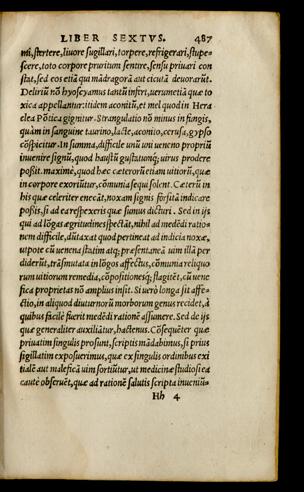 LIBER SEXTVS. 487
mi, stertere, liuore sugillari, torpere, refrigerari, stupe-
scere, toto corpore pruritum sentire, sensu priuari con
stat, sed eos etiā qui mādragorā aut cicutā deuorarūt.
Deliriū nō hyoscyamus tantū infri, uerumetiā quæ to
xica appellantur: itidem aconitū, et mel quod in Hera
clea Pōtica gignitur. Strangulatio nō minus in fungis,
quàm in sanguine taurino, lacte, aconito, cerusa, gypso
cōspicitur. In summa, difficile unū uni ueneno propriū
inuenire signū, quod haustū gustatumq; uirus prodere
possit. maximè, quod hæc cæterorum etiam uitiorū, quæ
in corpore exoriūtur, cōmunia sequi solent. Cæterū in
his quæ celeriter enecāt, noxam signis forsitā indicare
possis, si ad ea respexeris quæ sumus dicturi. Sed in ijs
qui ad lōgas ægritudines spectāt, nihil ad medēdi ratio-
nem difficile, dūtaxat quod pertineat ad indicia noxæ,
utpote cū uenena statim atq; præsentaneā uim illā per
diderūt, trāsmutata in lōgos affectus, cōmunia reliquo
rum uitiorum remedia, cōpositionesq; flagitēt, cū uene
fica proprietas nō amplius insit. Si uerò longa sit affe-
ctio, in aliquod diuturnorū morborum genus recidet, à
quibus facilè fuerit medēdi rationē assumere. Sed de ijs
quæ generaliter auxiliātur, hactenus. Cōsequēter quæ
priuatim singulis prosunt, scriptis mādabimus, si prius
sigillatim exposuerimus, quæ ex singulis ordinibus exi
tialē aut maleficā uim sortiūtur, ut medicinæ studiosi ea
cautè obseruēt, quæ ad rationē salutis scripta inueniū-
Hh 4